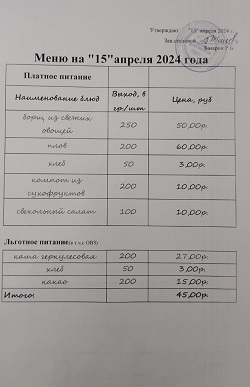 Утверждаю "15" апреля 2024 г.
Зав.столовой
Меню на "15"апреля 2024 года
Платное питание
Наименование блюд Выход, в гр/шт Цена, руб
борщ из свежих овощей 250 50,00р.
плов 200 60,00р.
хлеб 50 3,00р.
компот из сухофруктов 200 10,00р.
свекольный салат 100 10,00р.
Льготное питание(в т.ч.с ОВЗ)
каша геркулесовая 200 27,00р.
хлеб 50 3,00р.
какао 200 15,00р.
Итого: 45,00р.